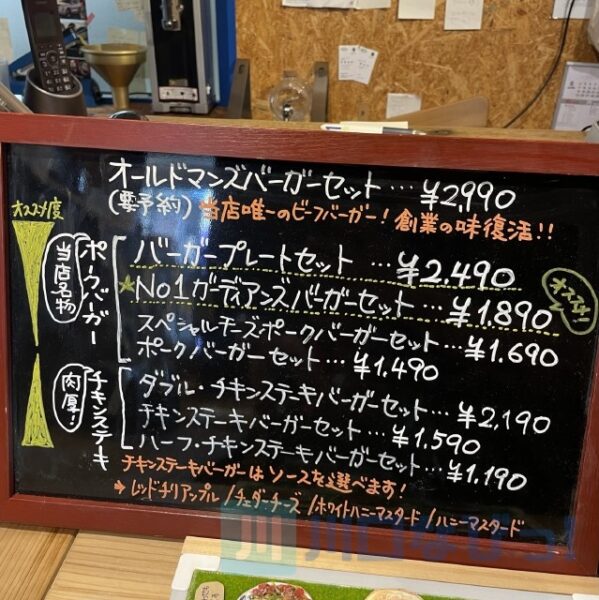 オールドマンズバーガーセット…¥2,990
(要予約) 当店唯一のビーフバーガー!創業の味復活!!
オススメ度
ポークバーガー
当店名物
バーガープレートセット…¥2,490
★No1ガーディアンズバーガーセット…¥1,890
オススメ!!
スペシャルチーズポークバーガーセット…¥1,690
ポークバーガーセット…¥1,490
チキンステーキ
肉厚!
ダブル・チキンステーキバーガーセット…¥2,190
チキンステーキバーガーセット…¥1,590
ハーフ・チキンステーキバーガーセット…¥1,190
チキンステーキバーガーはソースを選べます!
→レッドチリアップル/チェダーチーズ/ホワイトハニーマスタード/ハニーマスタード